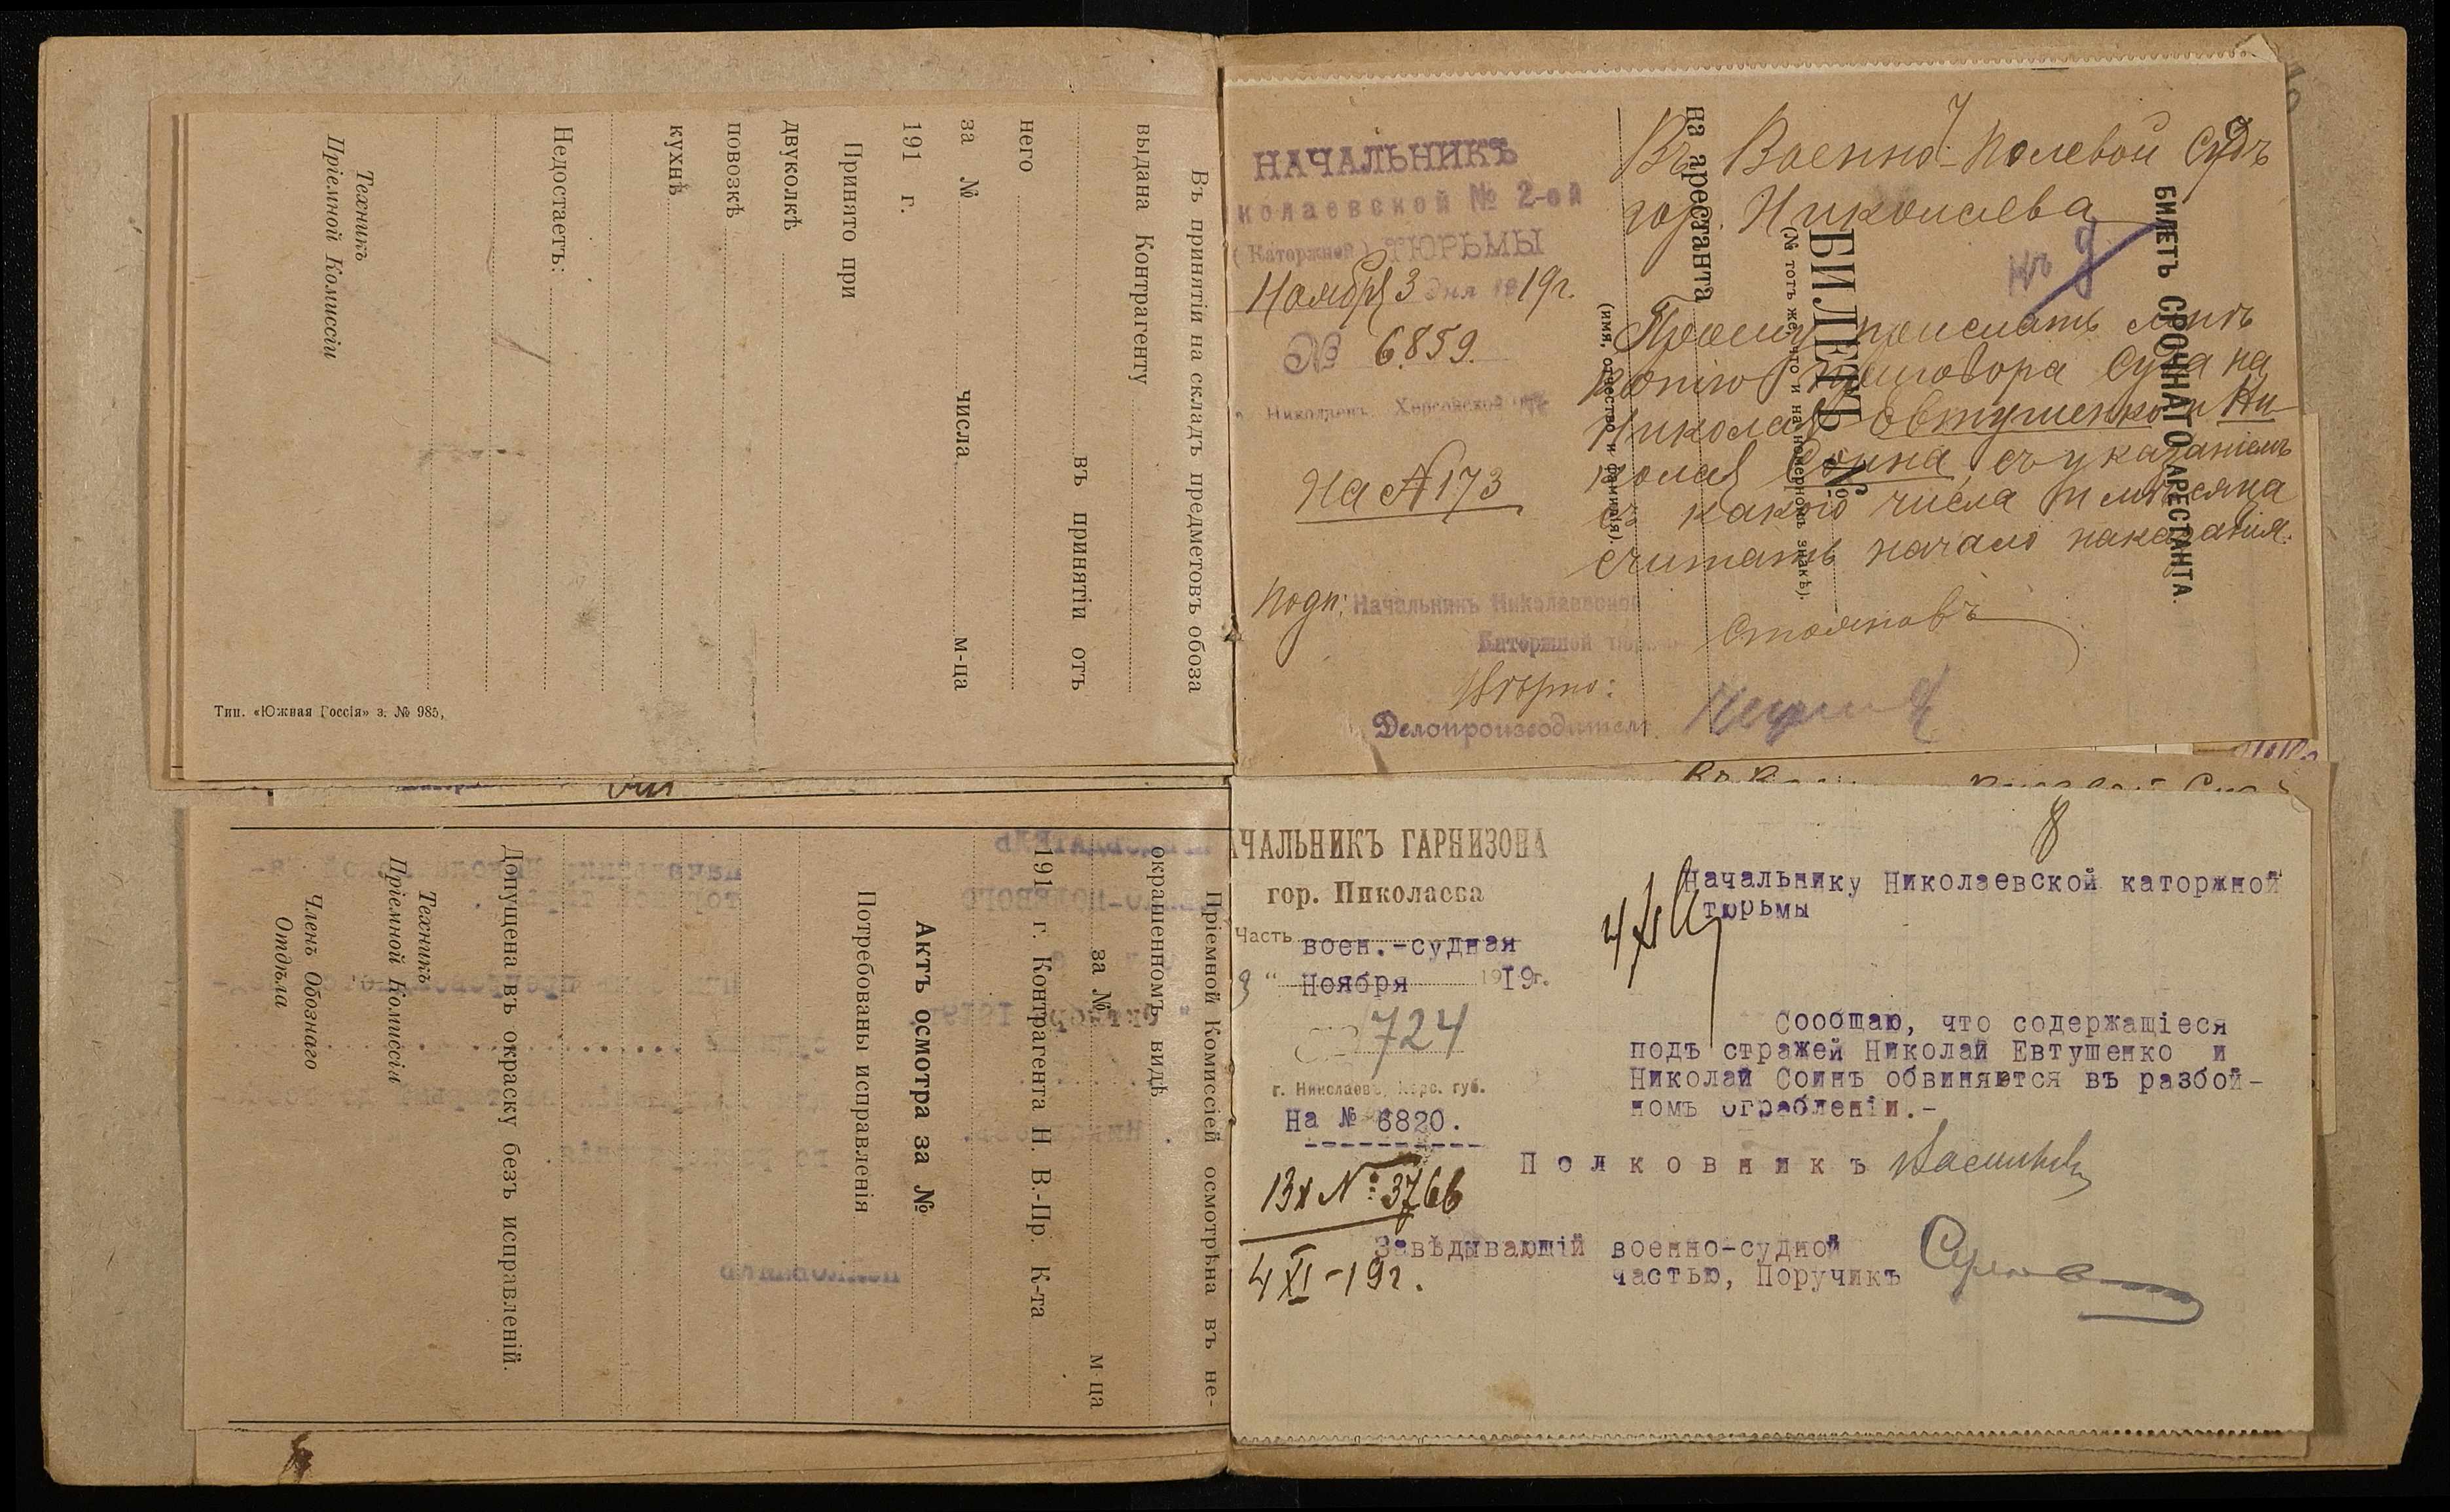 Въ принятіи на складъ предметовъ обоза
выдана Контрагенту
въ принятіи отъ
него
за № числа м-ца
191 г.
Принято при
двуколкѣ
повозкѣ
кухнѣ
Недостаетъ:
Техникъ
Пріемной Комиссіи
Тип. «Южная Россія» з. № 985,
Пріемной Комиссіей осмотрѣна въ не-
окрашенномъ видѣ
за № м-ца
191 г. Контрагента Н. В.-Пр. К-та
Актъ осмотра за №
Потребованы исправленія
Допущена въ окраску безъ исправленій.
Техникъ
Пріемной Комиссіи
Членъ Обознаго
Отдѣла
НАЧАЛЬНИКЪ
колаевской № 2-ой
(Каторжной) ТЮРЬМЫ
Ноября 3 дня 1919г.
№ 6859.
г. Николаевъ, Херсонской губ.
На №173
7
Въ Военно-Полевой Судъ
гор. Николаева
Къ д
Прошу прислать мнѣ
копію приговора Суда на
Николая Евтушенко и Ни-
колая Соина, съ указаніемъ
съ какого числа и мѣсяца
считать начало наказанія.
Подп: Начальникъ Николаевской
Каторжной тюрьмы Стояновъ
Вѣрно:
Делопроизводитель
БИЛЕТЪ СРОЧНАГО АРЕСТАНТА.
БИЛЕТЪ №
(№ тотъ же, что и на номерномъ знакѣ).
на арестанта
(имя, отчество и фамилія).
8
АЧАЛЬНИКЪ ГАРНИЗОНА
гор. Николаева
Часть воен.-судная
3 " Ноября 1919г.
724
г. Николаевъ, Херс. губ.
На № 6820.
Начальнику Николаевской каторжной
тюрьмы
Сообщаю, что содержащіеся
подъ стражей Николай Евтушенко и
Николай Соинъ обвиняются въ разбой-
номъ ограбленіи.-
Полковникъ
Завѣдывающій военно-судной
частью, Поручикъ
Вх №: 3766
4 XI-19г.